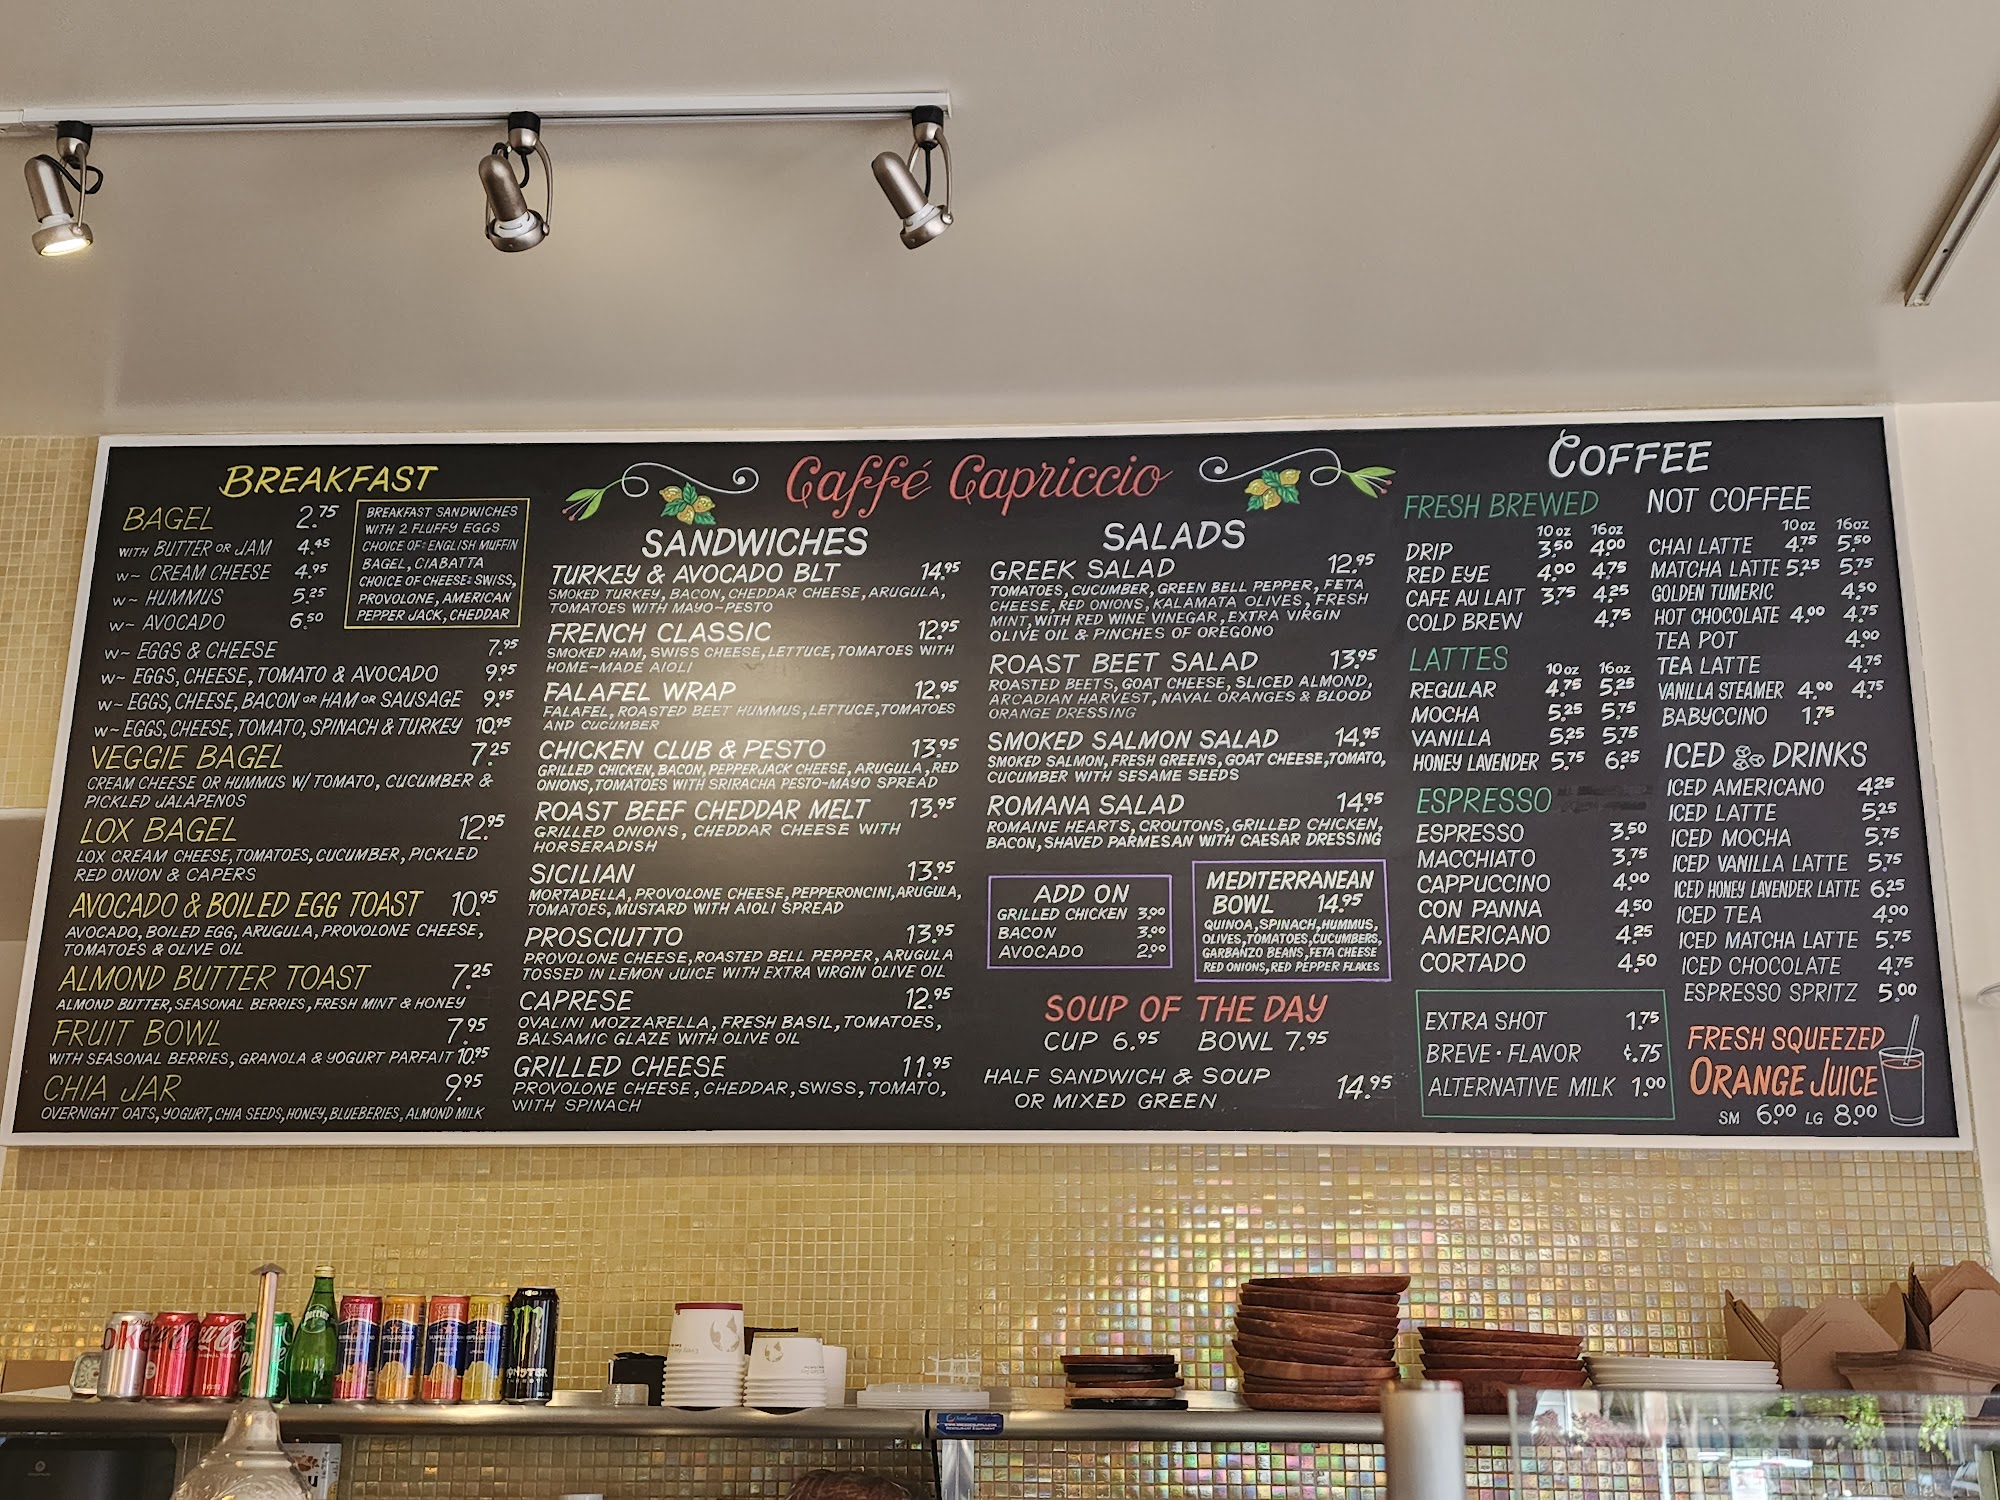 Caffé Capriccio
BREAKFAST
BAGEL 2.75
WITH BUTTER OR JAM 4.45
W~ CREAM CHEESE 4.95
W~ HUMMUS 5.25
W~ AVOCADO 6.50
BREAKFAST SANDWICHES
WITH 2 FLUFFY EGGS
CHOICE OF: ENGLISH MUFFIN
BAGEL, CIABATTA
CHOICE OF CHEESE: SWISS,
PROVOLONE, AMERICAN
PEPPER JACK, CHEDDAR
W~ EGGS & CHEESE 7.95
W~ EGGS, CHEESE, TOMATO & AVOCADO 9.95
W~ EGGS, CHEESE, BACON OR HAM OR SAUSAGE 9.95
W~ EGGS, CHEESE, TOMATO, SPINACH & TURKEY 10.95
VEGGIE BAGEL 7.25
CREAM CHEESE OR HUMMUS W/ TOMATO, CUCUMBER &
PICKLED JALAPENOS
LOX BAGEL 12.95
LOX CREAM CHEESE, TOMATOES, CUCUMBER, PICKLED
RED ONION & CAPERS
AVOCADO & BOILED EGG TOAST 10.95
AVOCADO, BOILED EGG, ARUGULA, PROVOLONE CHEESE,
TOMATOES & OLIVE OIL
ALMOND BUTTER TOAST 7.25
ALMOND BUTTER, SEASONAL BERRIES, FRESH MINT & HONEY
FRUIT BOWL 7.95
WITH SEASONAL BERRIES, GRANOLA & YOGURT PARFAIT 10.95
CHIA JAR 9.95
OVERNIGHT OATS, YOGURT, CHIA SEEDS, HONEY, BLUEBERIES, ALMOND MILK
SANDWICHES
TURKEY & AVOCADO BLT 14.95
SMOKED TURKEY, BACON, CHEDDAR CHEESE, ARUGULA,
TOMATOES WITH MAYO~PESTO
FRENCH CLASSIC 12.95
SMOKED HAM, SWISS CHEESE, LETTUCE, TOMATOES WITH
HOME~MADE AIOLI
FALAFEL WRAP 12.95
FALAFEL, ROASTED BEET HUMMUS, LETTUCE, TOMATOES
AND CUCUMBER
CHICKEN CLUB & PESTO 13.95
GRILLED CHICKEN, BACON, PEPPERJACK CHEESE, ARUGULA, RED
ONIONS, TOMATOES WITH SRIRACHA PESTO~MAYO SPREAD
ROAST BEEF CHEDDAR MELT 13.95
GRILLED ONIONS, CHEDDAR CHEESE WITH
HORSERADISH
SICILIAN 13.95
MORTADELLA, PROVOLONE CHEESE, PEPPERONCINI, ARUGULA,
TOMATOES, MUSTARD WITH AIOLI SPREAD
PROSCIUTTO 13.95
PROVOLONE CHEESE, ROASTED BELL PEPPER, ARUGULA
TOSSED IN LEMON JUICE WITH EXTRA VIRGIN OLIVE OIL
CAPRESE 12.95
OVALINI MOZZARELLA, FRESH BASIL, TOMATOES,
BALSAMIC GLAZE WITH OLIVE OIL
GRILLED CHEESE 11.95
PROVOLONE CHEESE, CHEDDAR, SWISS, TOMATO,
WITH SPINACH
SALADS
GREEK SALAD 12.95
TOMATOES, CUCUMBER, GREEN BELL PEPPER, FETA
CHEESE, RED ONIONS, KALAMATA OLIVES, FRESH
MINT, WITH RED WINE VINEGAR, EXTRA VIRGIN
OLIVE OIL & PINCHES OF OREGONO
ROAST BEET SALAD 13.95
ROASTED BEETS, GOAT CHEESE, SLICED ALMOND,
ARCADIAN HARVEST, NAVAL ORANGES & BLOOD
ORANGE DRESSING
SMOKED SALMON SALAD 14.95
SMOKED SALMON, FRESH GREENS, GOAT CHEESE, TOMATO,
CUCUMBER WITH SESAME SEEDS
ROMANA SALAD 14.95
ROMAINE HEARTS, CROUTONS, GRILLED CHICKEN,
BACON, SHAVED PARMESAN WITH CAESAR DRESSING
ADD ON
GRILLED CHICKEN 3.00
BACON 3.00
AVOCADO 2.00
MEDITERRANEAN
BOWL 14.95
QUINOA, SPINACH, HUMMUS,
OLIVES, TOMATOES, CUCUMBERS,
GARBANZO BEANS, FETA CHEESE
RED ONIONS, RED PEPPER FLAKES
SOUP OF THE DAY
CUP 6.95 BOWL 7.95
HALF SANDWICH & SOUP
OR MIXED GREEN 14.95
COFFEE
FRESH BREWED
10 oz 16 oz
DRIP 3.50 4.00
RED EYE 4.00 4.75
CAFE AU LAIT 3.75 4.25
COLD BREW 4.75
LATTES 10 oz 16 oz
REGULAR 4.75 5.25
MOCHA 5.25 5.75
VANILLA 5.25 5.75
HONEY LAVENDER 5.75 6.25
ESPRESSO
ESPRESSO 3.50
MACCHIATO 3.75
CAPPUCCINO 4.00
CON PANNA 4.50
AMERICANO 4.25
CORTADO 4.50
EXTRA SHOT 1.75
BREVE · FLAVOR ¢.75
ALTERNATIVE MILK 1.00
NOT COFFEE
10 oz 16 oz
CHAI LATTE 4.75 5.50
MATCHA LATTE 5.25 5.75
GOLDEN TUMERIC 4.50
HOT CHOCOLATE 4.00 4.75
TEA POT 4.00
TEA LATTE 4.75
VANILLA STEAMER 4.00 4.75
BABYCCINO 1.75
ICED DRINKS
ICED AMERICANO 4.25
ICED LATTE 5.25
ICED MOCHA 5.75
ICED VANILLA LATTE 5.75
ICED HONEY LAVENDER LATTE 6.25
ICED TEA 4.00
ICED MATCHA LATTE 5.75
ICED CHOCOLATE 4.75
ESPRESSO SPRITZ 5.00
FRESH SQUEEZED
ORANGE JUICE
SM 6.00 LG 8.00
perrier
MONSTER